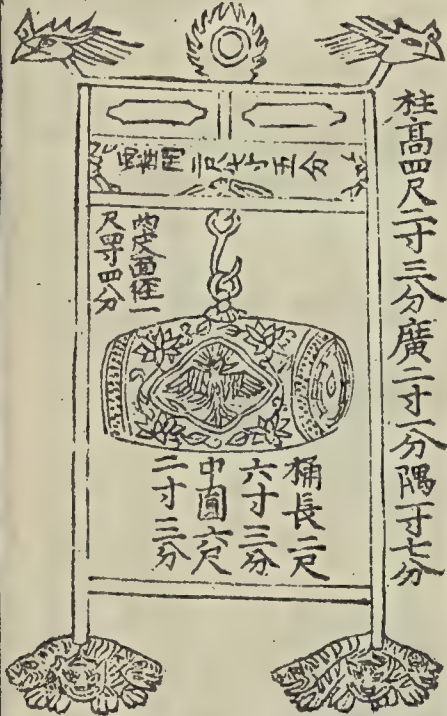 柱高四尺二寸三分廣二寸一分隅一寸七分
間二尺七寸五分
兩皮面徑一
尺四寸四分
桶長二尺
六寸三分
中圍六尺
二寸三分